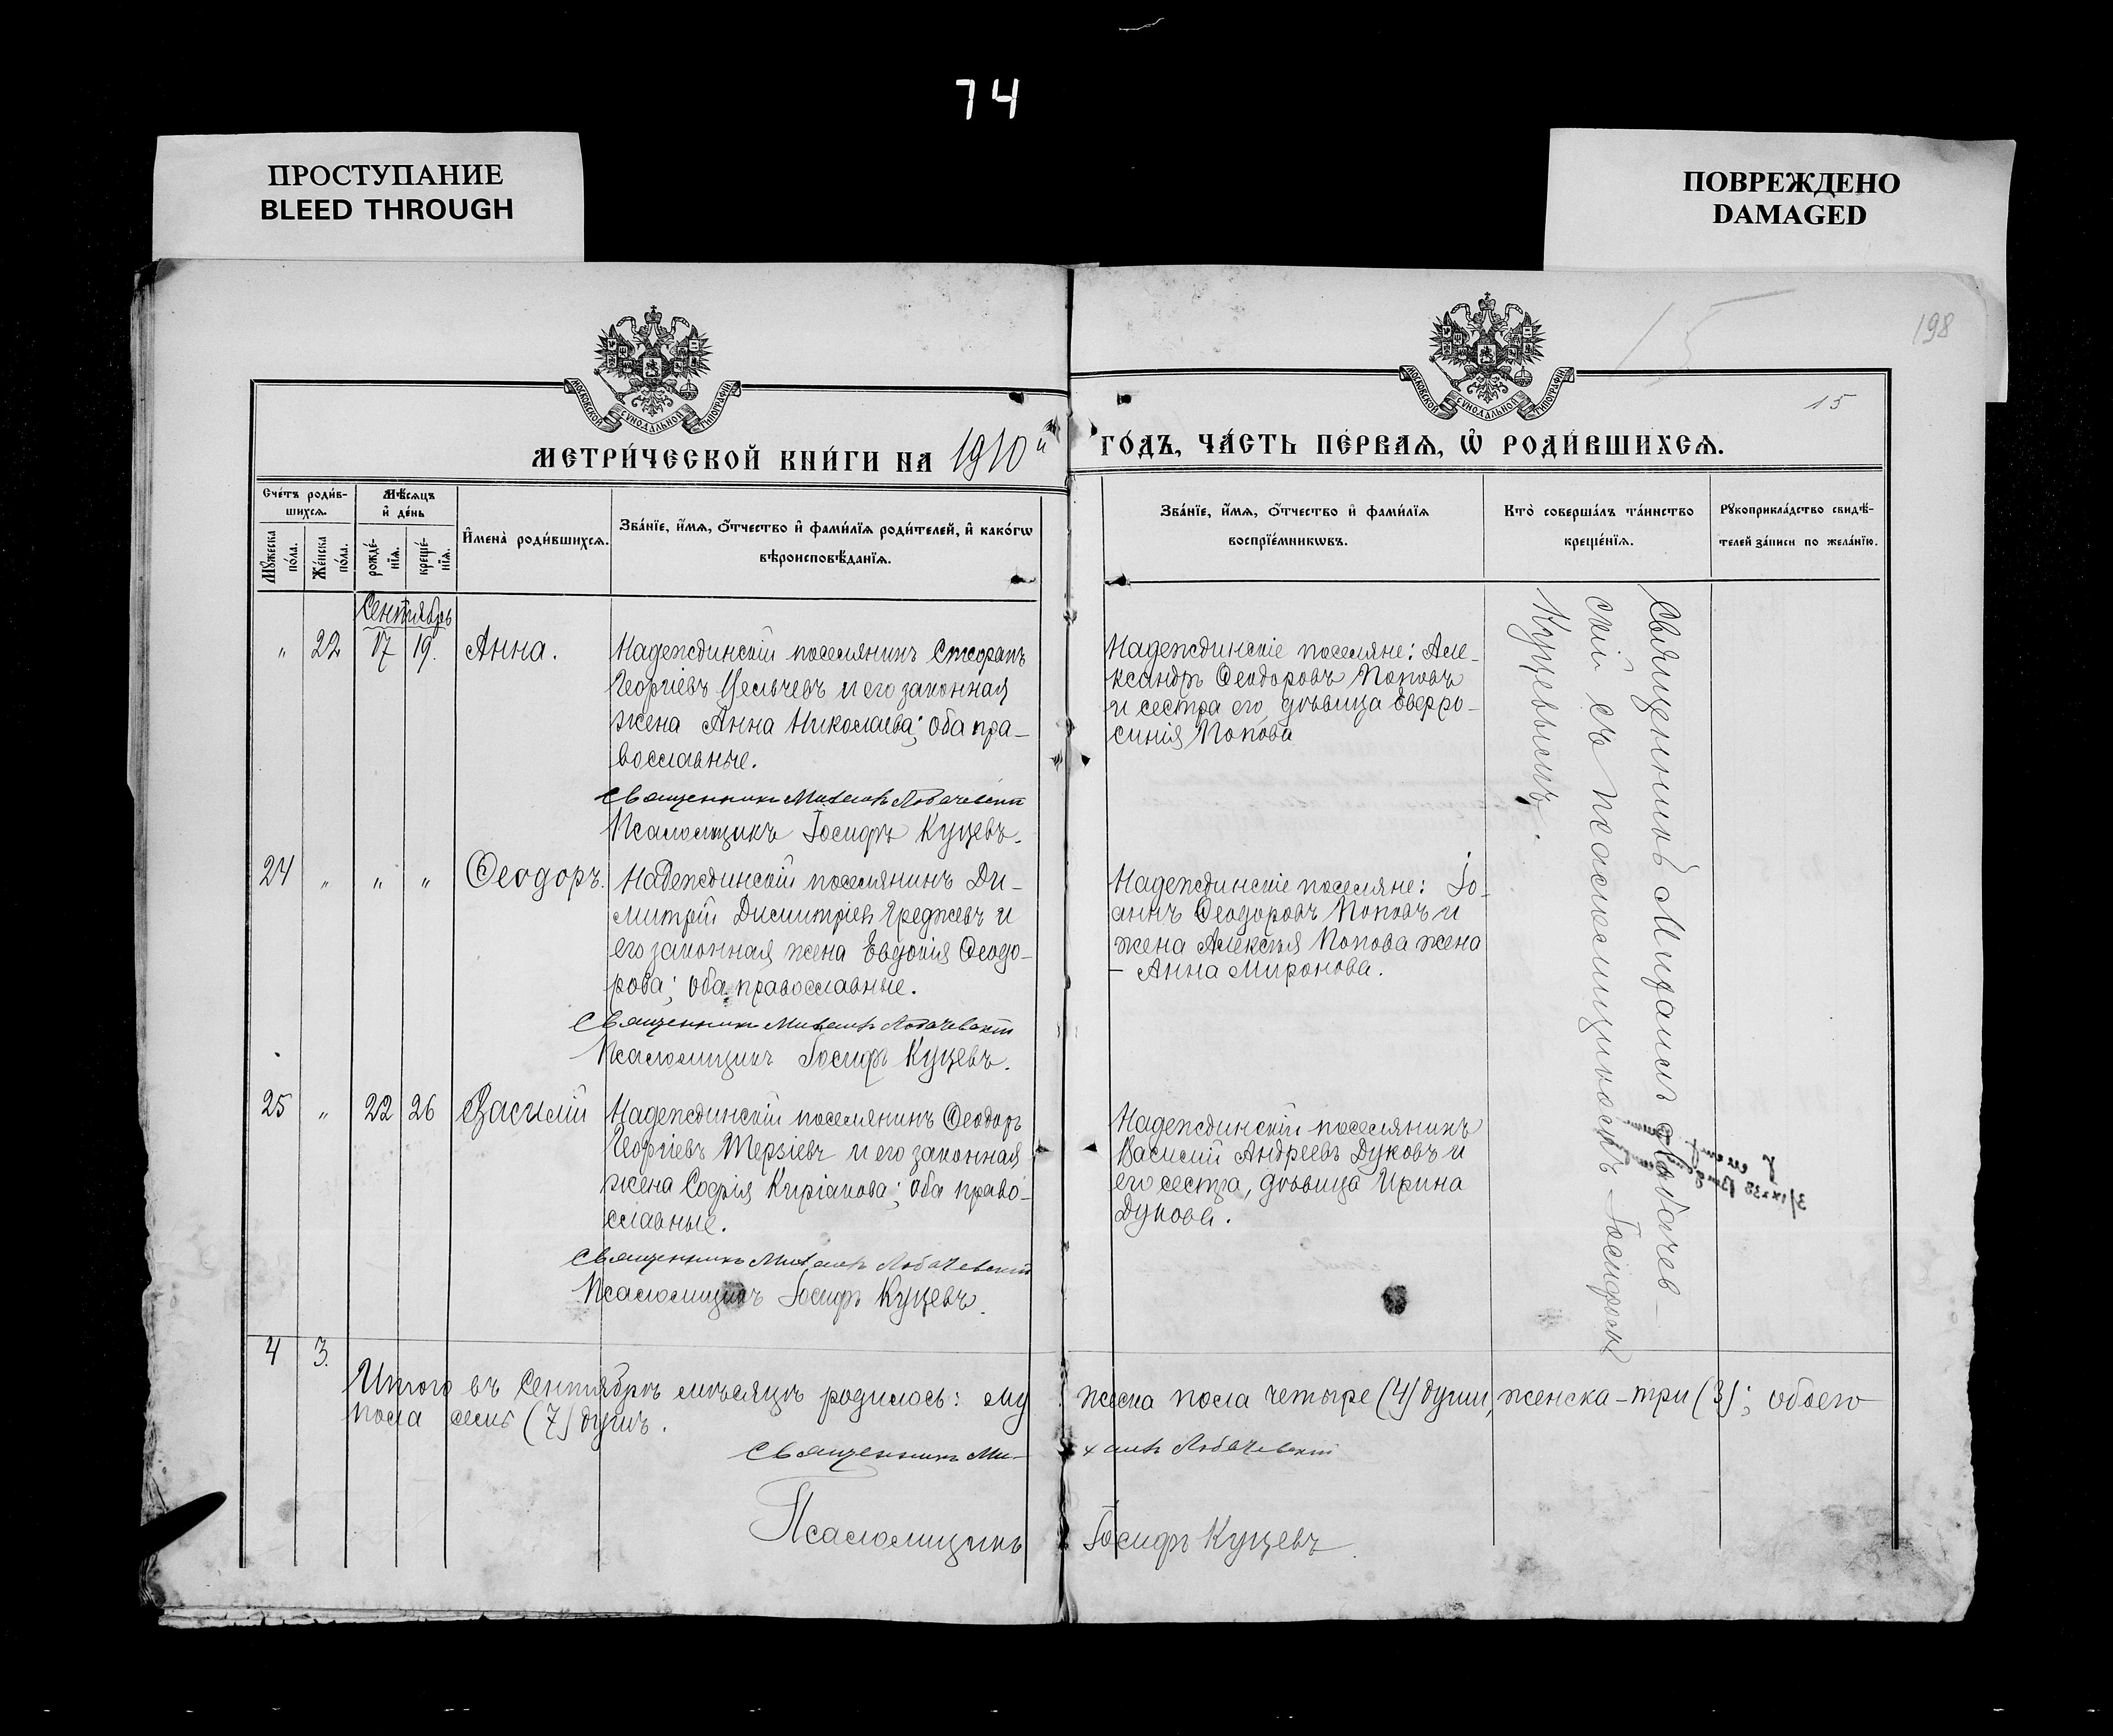 74
ПРОСТУПАНИЕ
BLEED THROUGH
ПОВРЕЖДЕНО
DAMAGED
198
15
15
МОСКОВСКОЙ СУНОДАЛЬНОЙ ТИПОГРАФІИ
МОСКОВСКОЙ СУНОДАЛЬНОЙ ТИПОГРАФІИ
МЕТРИ́ЧЕСКОЙ КНИ́ГИ НА 1910 й ГО́ДЪ, ЧА́СТЬ ПЕ́РВАЯ, Ѽ РОДИ́ВШИХСЯ.
Сче́тъ роди́в-
шихся.
Мꙋ́жеска по́ла.
Же́нска по́ла.
Мѣ́сяцъ
и де́нь
рожде́-
нїя.
креще́-
нїя.
И҆мена̀ роди́вшихся.
Зва́нїе, и҆́мя, ѻ҆́тчество и҆ фами́лїя роди́телей, и҆ како́гѡ
вѣроисповѣ́данїя.
Зва́нїе, и҆́мя, ѻ҆́тчество и҆ фами́лїя
воспрїе́мникѡвъ.
Кто̀ соверша́лъ та́инство
креще́нїя.
Рꙋкоприкла́дство свидѣ́-
телей за́писи по жела́нїю.
Сентябрь
" 22 17 19. Анна.
Надеждинскій поселянинъ Стефанъ
Георгіевъ Цельчевъ и его законная
жена Анна Николаева; оба пра-
вославные.
Священникъ Михаилъ Лобачевскій
Псаломщикъ Іосифъ Куцевъ.
Надеждинскіе поселяне: Але-
ксандръ Ѳеодоровъ Поповъ
и сестра его, дѣвица Евфро-
синія Попова
24 " " " Ѳеодоръ.
Надеждинскій поселянинъ Ди-
митрій Димитріевъ Греджевъ и
его законная жена Евдокія Ѳеодо-
рова; оба православные.
Священникъ Михаилъ Лобачевскій
Псаломщикъ Іосифъ Куцевъ.
Надеждинскіе поселяне: Іо-
аннъ Ѳеодоровъ Поповъ и
жена Алексѣя Попова жена
- Анна Миронова.
25 " 22 26 Василій
Надеждинскій поселянинъ Ѳеодоръ
Георгіевъ Терзіевъ и его законная
жена Софія Киріакова; оба право-
славные.
Священникъ Михаилъ Лобачевскій
Псаломщикъ Іосифъ Куцевъ.
Надеждинскій поселянинъ
Василій Андреевъ Дуковъ и
его сестра, дѣвица Ирина
Дукова.
Священникъ Михаилъ Лобачев-
скій съ псаломщикомъ Іосифомъ
Куцевымъ.
4 3.
Итого въ Сентябрѣ мѣсяцѣ родилось: му жеска пола четыре (4) души, женска - три (3); обоего
пола семь (7) душъ.
Священникъ Ми- хаилъ Лобачевскій
Псаломщикъ Іосифъ Куцевъ.